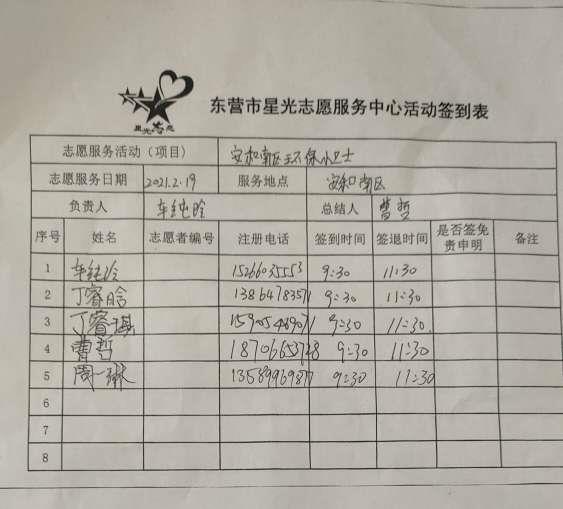 星光志愿
东营市星光志愿服务中心活动签到表
志愿服务活动（项目） 安和南区环保小卫士
志愿服务日期 2021.2.19 服务地点 安和南区
负责人 车纯 总结人 曹哲
序号 姓名 志愿者编号 注册电话 签到时间 签退时间 是否签免责申明 备注
1 车纯 15266035553 9:30 11:30
2 丁睿晗 13864783571 9:30 11:30
3 丁睿琪 9:30 11:30.
4 曹哲 18706653728 9:30 11:30
5 周一琳 9:30 11:30
6
7
8